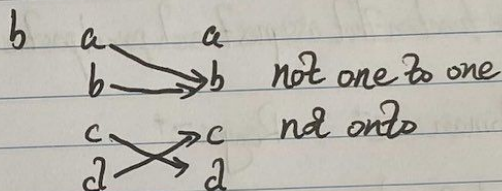 b a a
b b not one to one
c c not onto
d d